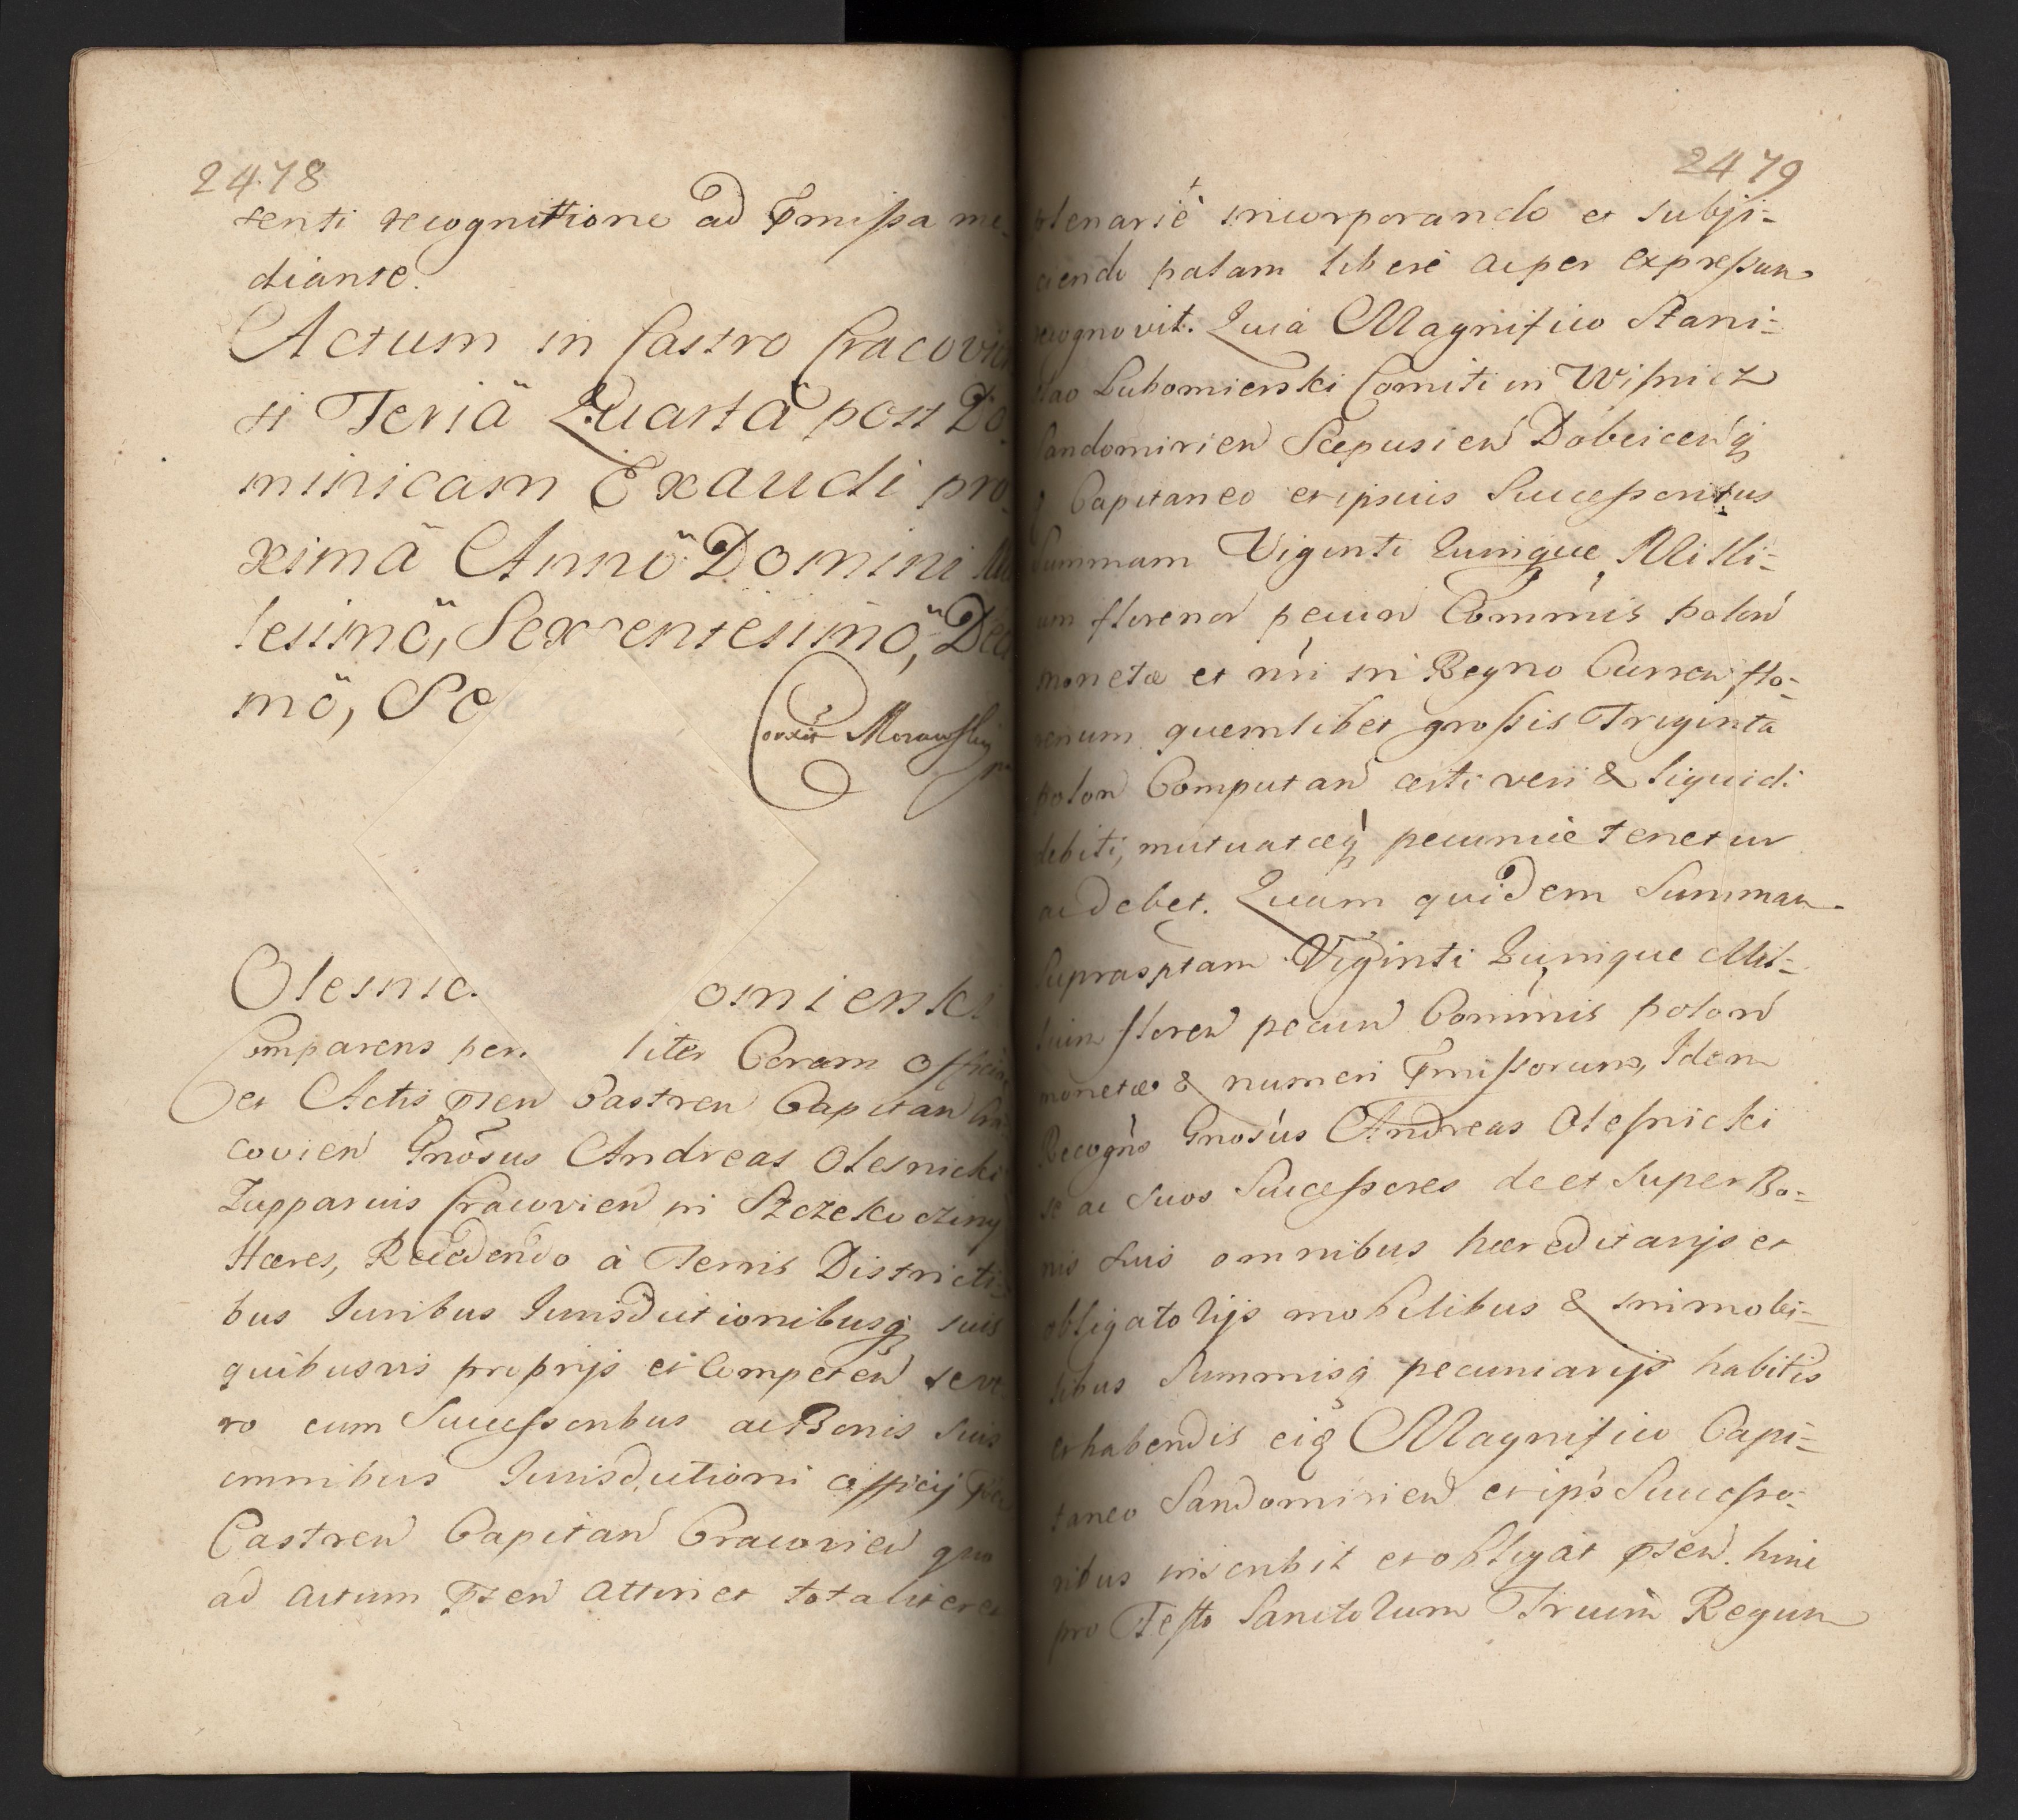 2478
senti recognittione ad pmissa me-
diante.
Actum in Castro Cracovien
si Feriä Quartä post Do-
minicam Exaudi pro-
ximä Annö Domini Mil
lesimö, Sexcentesimö, Deci
mö, Se
Corrxit Morawsky
Olesnic. omierski
Comparens per. liter Coram Officio
et Actis pnsen Castren Capitan Cra-
covien Gnosus Andreas Olesnicki
Zupparius Cracovien in Szczekocziny
Hæres, Recedendo à Terris Districti-
bus Juribus Jurisdictionibusq suis
quibusvis proprijs et Competen seve
ro cum Successoribus ac Bonis Suis
omnibus Jurisdictioni officij
Castren Capitan Cracovien quo
ad actum pnsen attinet totaliter et
2479
plenariè incorporando et subji-
ciendo palam liberè ac per expressum
recognovit. Quia Magnifico Stani-
slao Lubomierski Comiti in Wisnicz
Sandomirien Scepusien Dobcicenq
Capitaneo et ipsius Successoribus
Summam Viginti Quinque Milli-
um florenor pecun Commnis polon
monetæ et nri in Regno Curren flo-
renum quemlibet grossis Triginta
polon Computan certi veri & liquidi
debiti, mutuatæq pecuniæ tenetur
ac debet. Quam quidem Summam
suprasptam Viginti Quinque Mil-
lium floren pecun Commnis polon
monetæ & numeri pmissorum, Idem
Recogns Gnosus Andreas Olesnicki
se ac suos Successores de et super Bo-
nis suis omnibus hæreditarijs et
obligatorijs mobilibus & immobi-
libus Summisq pecuniarijs habitis
et habendis eiq Magnifico Capi-
taneo Sandomirien et ips Successo-
ribus inscribit et obligat pnsen. hinc
pro Festo Sanctorum Trium Regum